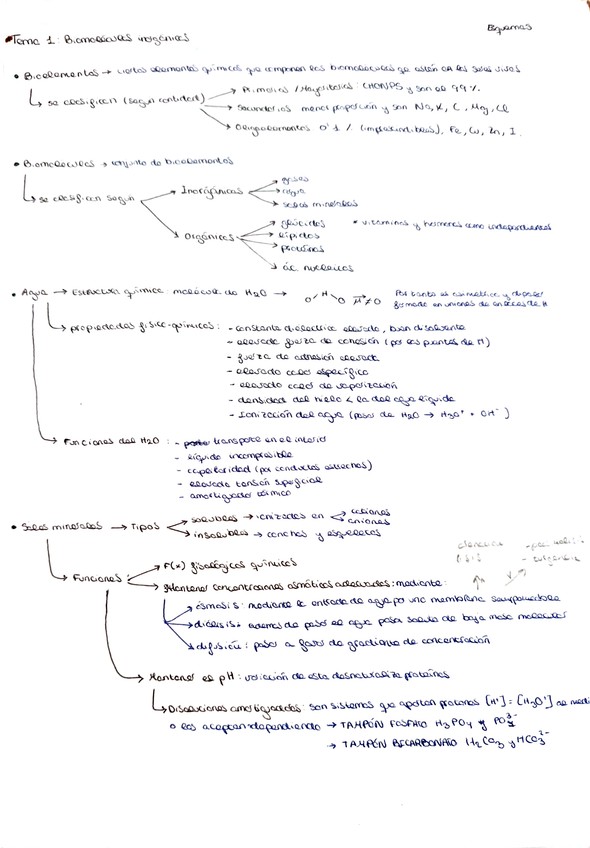 Esquemas
Tema 1: Biomoléculas inorgánicas
• Bioelementos → ciertos elementos químicos que componen las biomoléculas que están en los seres vivos
→ se clasifican (según cantidad) → Primarios / Mayoritarios: CHONPS y son el 99%
→ Secundarios menor proporción y son Na, K, C, Mg, Cl
→ Oligoelementos 0'1% (imprescindibles), Fe, Cu, Zn, I.
• Biomoléculas → conjunto de bioelementos
→ se clasifican según → Inorgánicas → gases
→ agua
→ sales minerales
→ Orgánicas → glúcidos * vitaminas y hormonas como independientes
→ lípidos
→ proteínas
→ ác nucleicos
• Agua → Estructura química molécula de H2O → O / H \ O μ ≠ 0 Por tanto es asimétrica y dipolar
formado en uniones de enlaces de H
→ propiedades físico-químicas: - constante dieléctrica elevada, buen disolvente
- elevada fuerza de cohesión (por los puentes de H)
- fuerza de adhesión elevada
- elevado calor específico
- elevado calor de vaporización
- densidad del hielo < la del agua líquida
- Ionización del agua (pasar de H2O → H3O+ + OH-)
→ Funciones del H2O: - transporte en el interior
- líquido incompresible
- capilaridad (por conductos estrechos)
- elevada tensión superficial
- amortiguador térmico
• Sales minerales → Tipos → solubles → ionizadas en → cationes
→ aniones
→ insolubles → conchas y esqueletos
→ Funciones: → F(x) fisiológicas químicas
- turgencia
→ Mantener concentraciones osmóticas adecuadas: mediante:
→ ósmosis: mediante la entrada de agua por una membrana semipermeable
→ diálisis: además de pasar el agua pasa soluto de baja masa molecular
→ difusión: pasar a favor de gradiente de concentración
→ Mantener el pH: variación de esta desnaturaliza proteínas
→ Disoluciones amortiguadoras: son sistemas que aportan protones [H+] = [H3O+] se medi
o los aceptan dependiendo → TAMPÓN FOSFATO H3PO4 y PO4 3-
→ TAMPÓN BICARBONATO H2CO3 y HCO3 2-